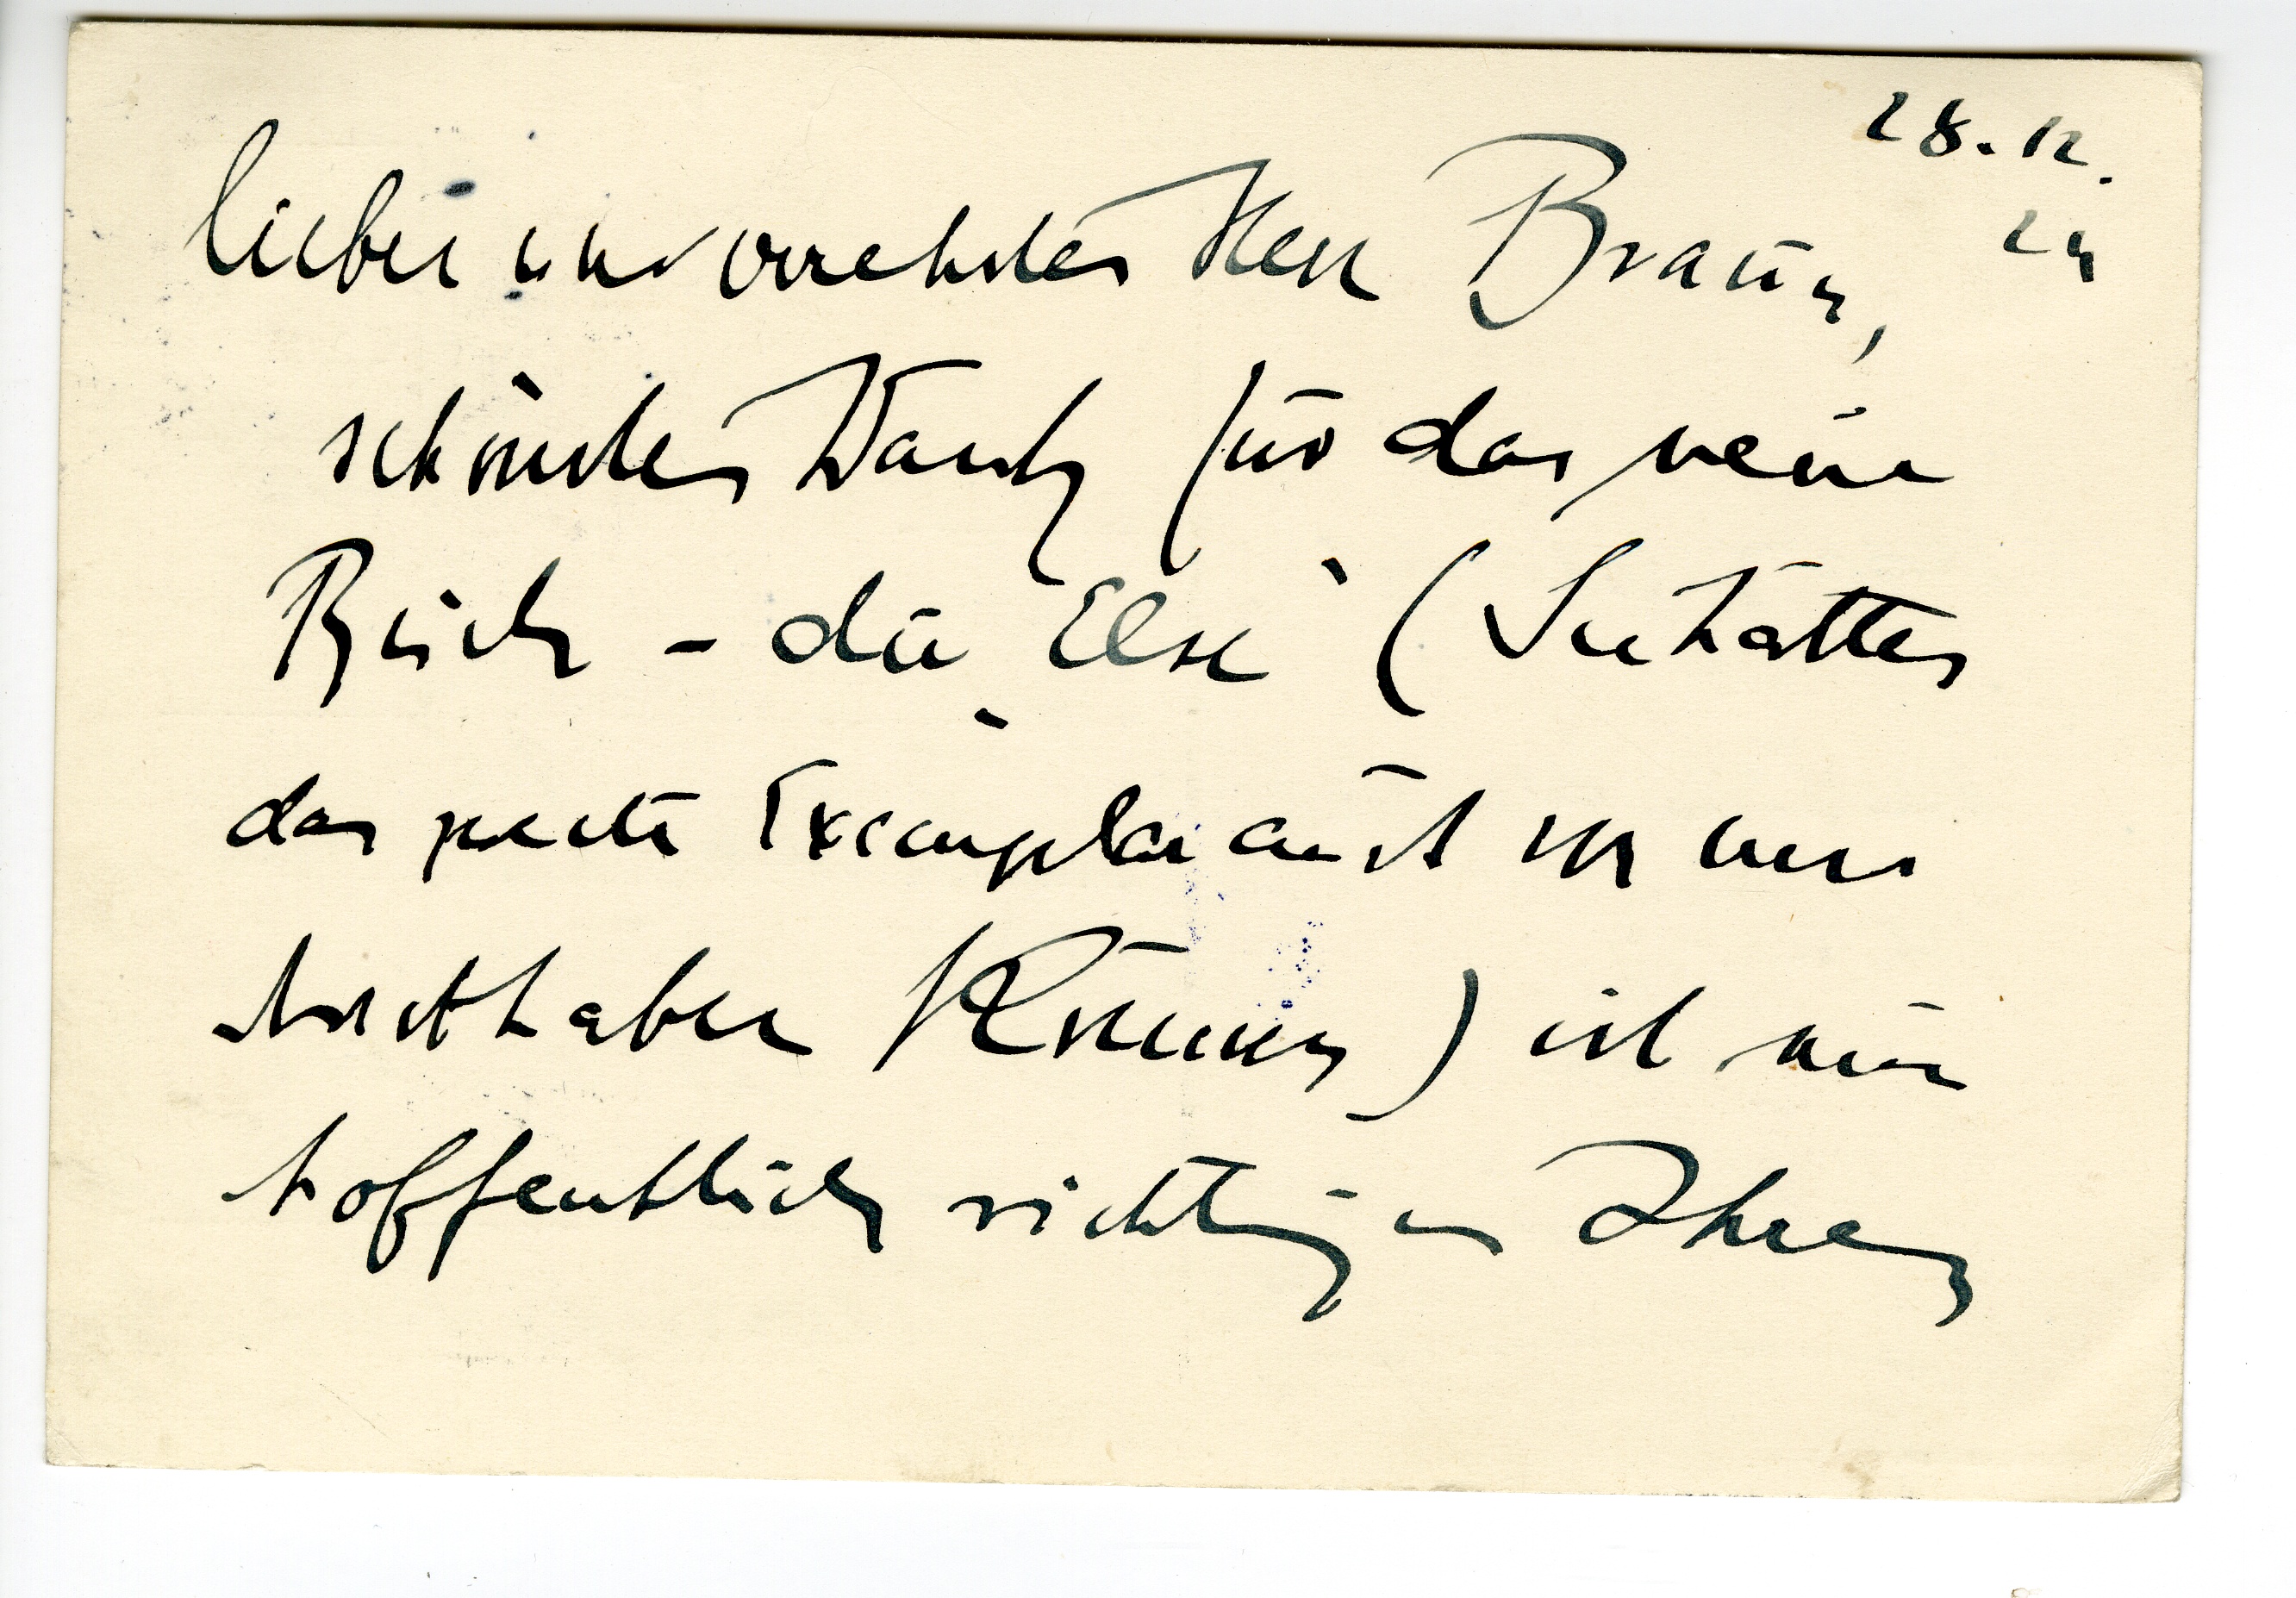 28.12.
24
lieber und verehrter Herr Braun,
schönsten Dank für das neue
Buch – die „Else“ (Sie hätten
das zweite Exemplar auch von uns
direkt haben können) ist nun
hoffentlich richtig in Ihren